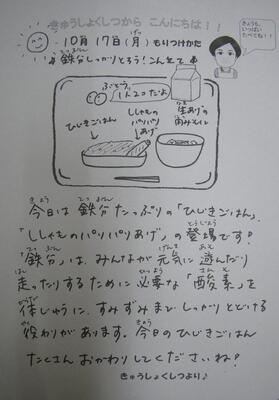 きゅうしょくしつから こんにちは！！
きょうも、
いっぱい
たべてね！！
10月 17日(月) もりつけかた
鉄分しっかりとろう！こんだて
ぶどう
1人2コだよ
ひじきごはん
ししゃもの
パリパリ
あげ
生あげの
おみそしる
今日は 鉄分たっぷりの「ひじきごはん」、
「ししゃものパリパリあげ」の登場です！
「鉄分」は、みんなが元気に遊んだり
走ったりするために必要な「酸素」を
体じゅうに、すみずみまでしっかりとどける
役わりがあります。今日のひじきごはん
たくさんおかわりしてくださいね！
きゅうしょくしつより♪